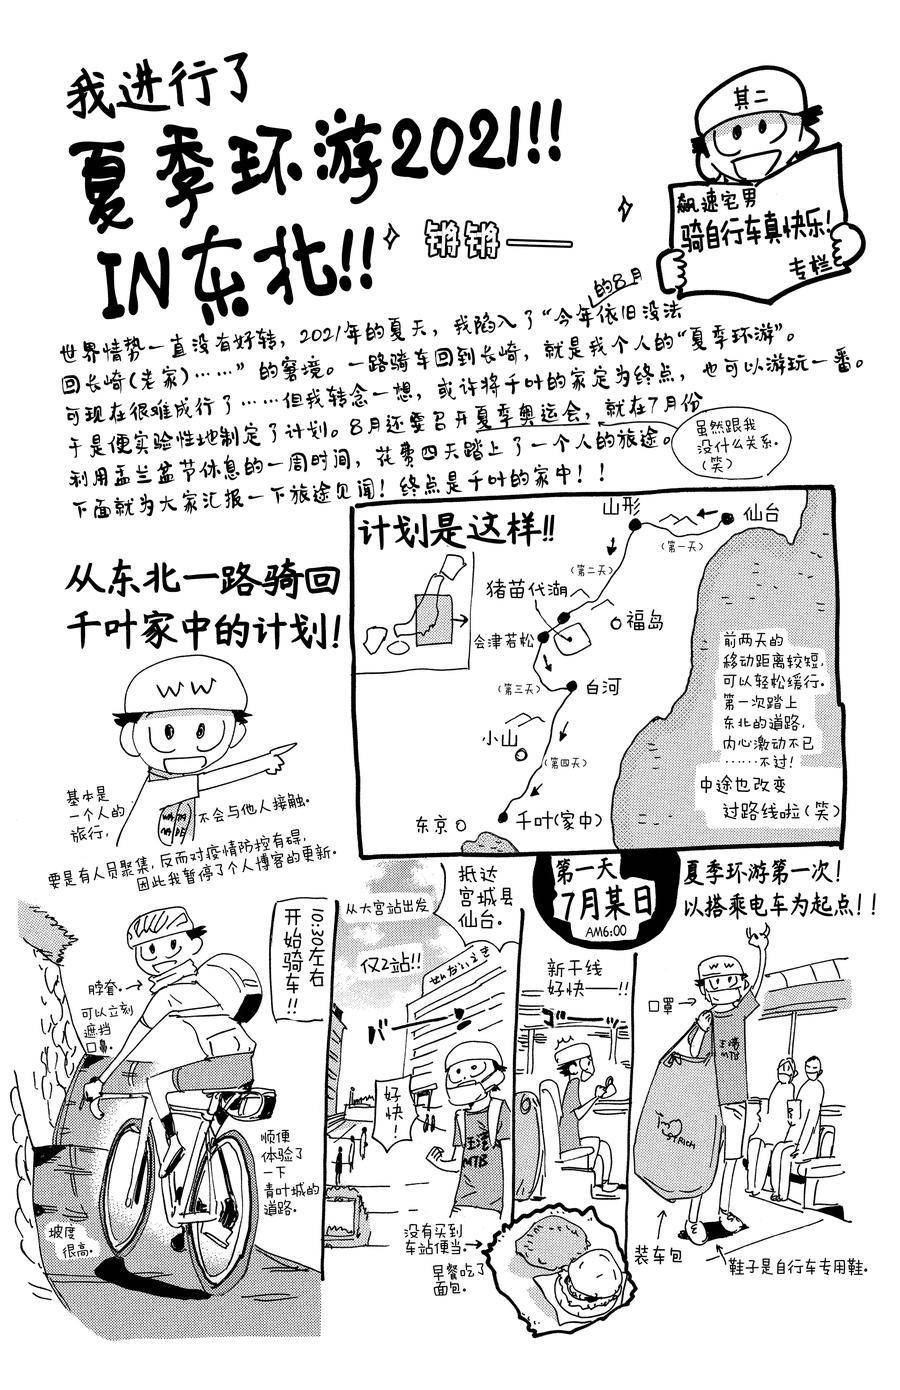 我进行了
夏季环游2021!!
IN东北!!
锵锵——
其二
飙速宅男
骑自行车真快乐!
专栏
世界情势一直没有好转，2021年的夏天，我陷入了“今年的8月依旧没法
回长崎(老家)……”的窘境。一路骑车回到长崎，就是我个人的“夏季环游”。
可现在很难成行了……但我转念一想，或许将千叶的家定为终点，也可以游玩一番。
于是便实验性地制定了计划。8月还要召开夏季奥运会，就在7月份
利用盂兰盆节休息的一周时间，花费四天踏上了一个人的旅途。
下面就为大家汇报一下旅途见闻！终点是千叶的家中！！
虽然跟我
没什么关系.
(笑)
从东北一路骑回
千叶家中的计划!
WW
基本是
一个人的
旅行,
不会与他人接触.
要是有人员聚集,反而对疫情防控有碍,
因此我暂停了个人博客的更新.
计划是这样!!
山形
仙台
(第一天)
(第二天)
猪苗代湖
福岛
会津若松
(第三天)
白河
小山
(第四天)
东京
千叶(家中)
前两天的
移动距离较短,
可以轻松缓行.
第一次踏上
东北的道路,
内心激动不已
……不过!
中途也改变
过路线啦(笑)
第一天
7月某日
AM6:00
夏季环游第一次!
以搭乘电车为起点!!
WW
口罩→
玉湾
MTB
装车包
鞋子是自行车专用鞋.
新干线
好快——!!
ゴーッ
抵达
宫城县
仙台.
从大宫站出发
仅2站!!
せんだいえき
バーン
好快!
玉湾
MTB
没有买到
车站便当.
早餐吃了
面包.
10:30左右
开始骑车!!
脖脊.
可以立刻
遮挡
口鼻.
顺便
体验了
一下
青叶城的
道路.
坡度
很高.